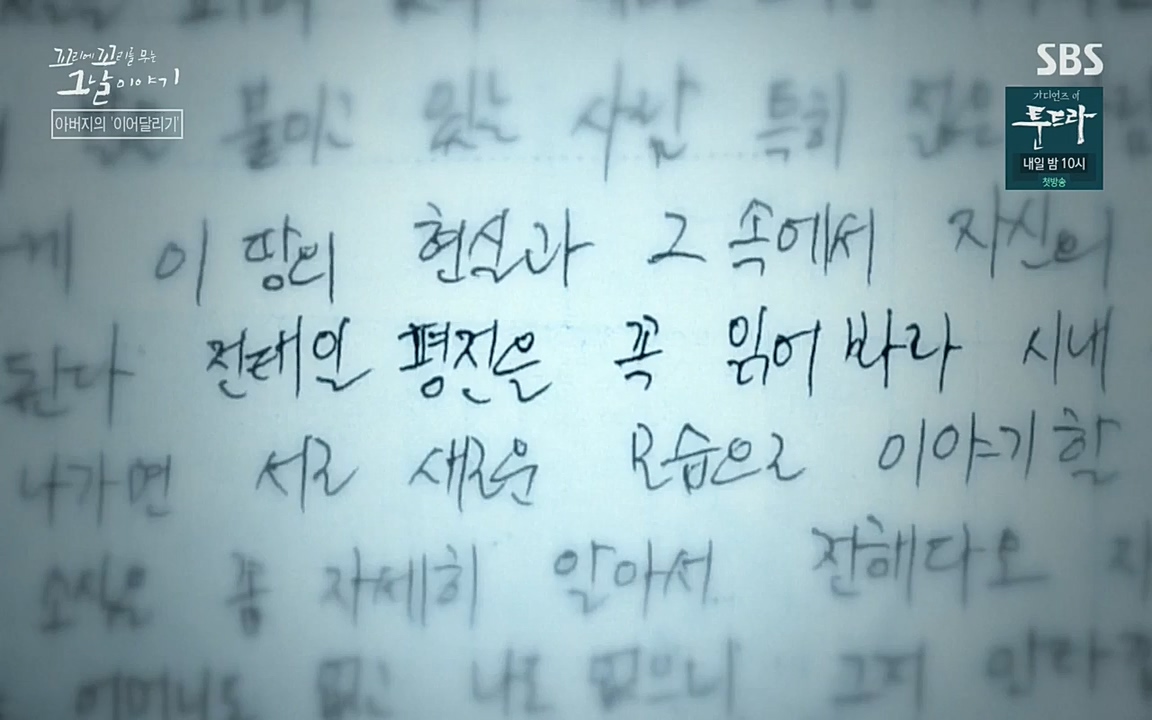 꼬리에 꼬리를 무는
그날 이야기
아버지의 '이어달리기'
SBS
가디언즈 of
툰드라
내일 밤 10시
첫방송
있는 사람 특히 젊은
게 이 땅의 현실과 그 속에서 자신의
된다 전태일 평전은 꼭 읽어 바라 시내
나가면 서로 새로운 모습으로 이야기할
소식은 좀 자세히 알아서 전해다오
어머니도 없고 나도 없으니 그저